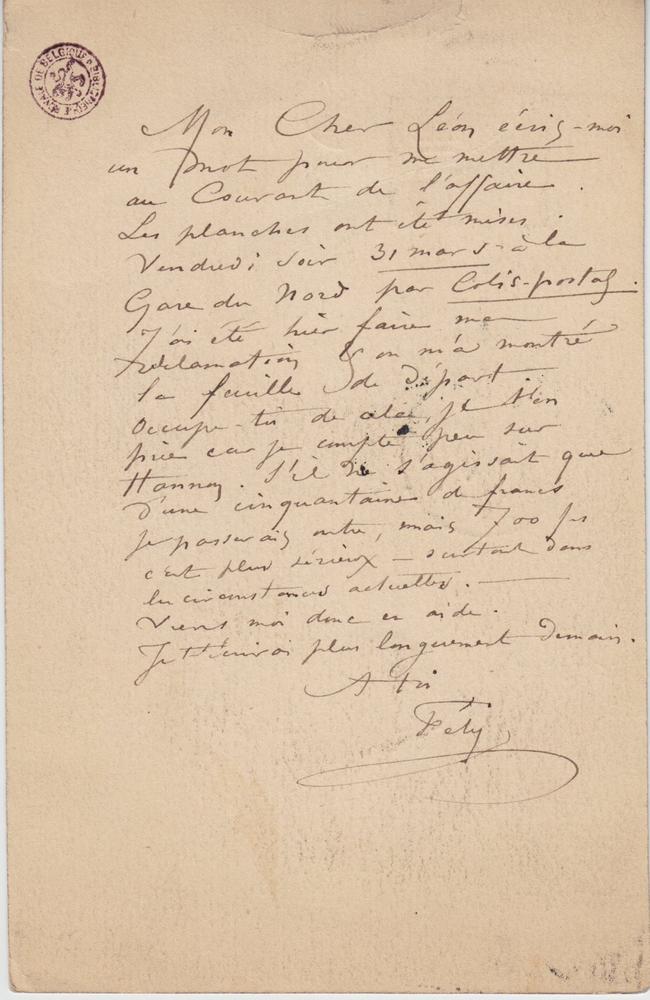 BIBLIOTHÈQUE ROYALE DE BELGIQUE
Mon Cher Léon écris-moi
un mot pour me mettre
au Courant de l'affaire.
Les planches ont été mises.
Vendredi soir 31 mars à la
Gare du Nord par Colis-postal.
J'ai été hier faire ma
réclamation & on m'a montré
la feuille de départ
occupe-toi de cela, je t'en
prie car je compte peu sur
Hannon. S'il ne s'agissait que
d'une cinquantaine de francs
je passerais outre, mais 700 frs
c'est plus sérieux — surtout dans
les circonstances actuelles. —
Viens moi donc en aide.
Je t'écrirai plus longuement demain.
A toi
Fély